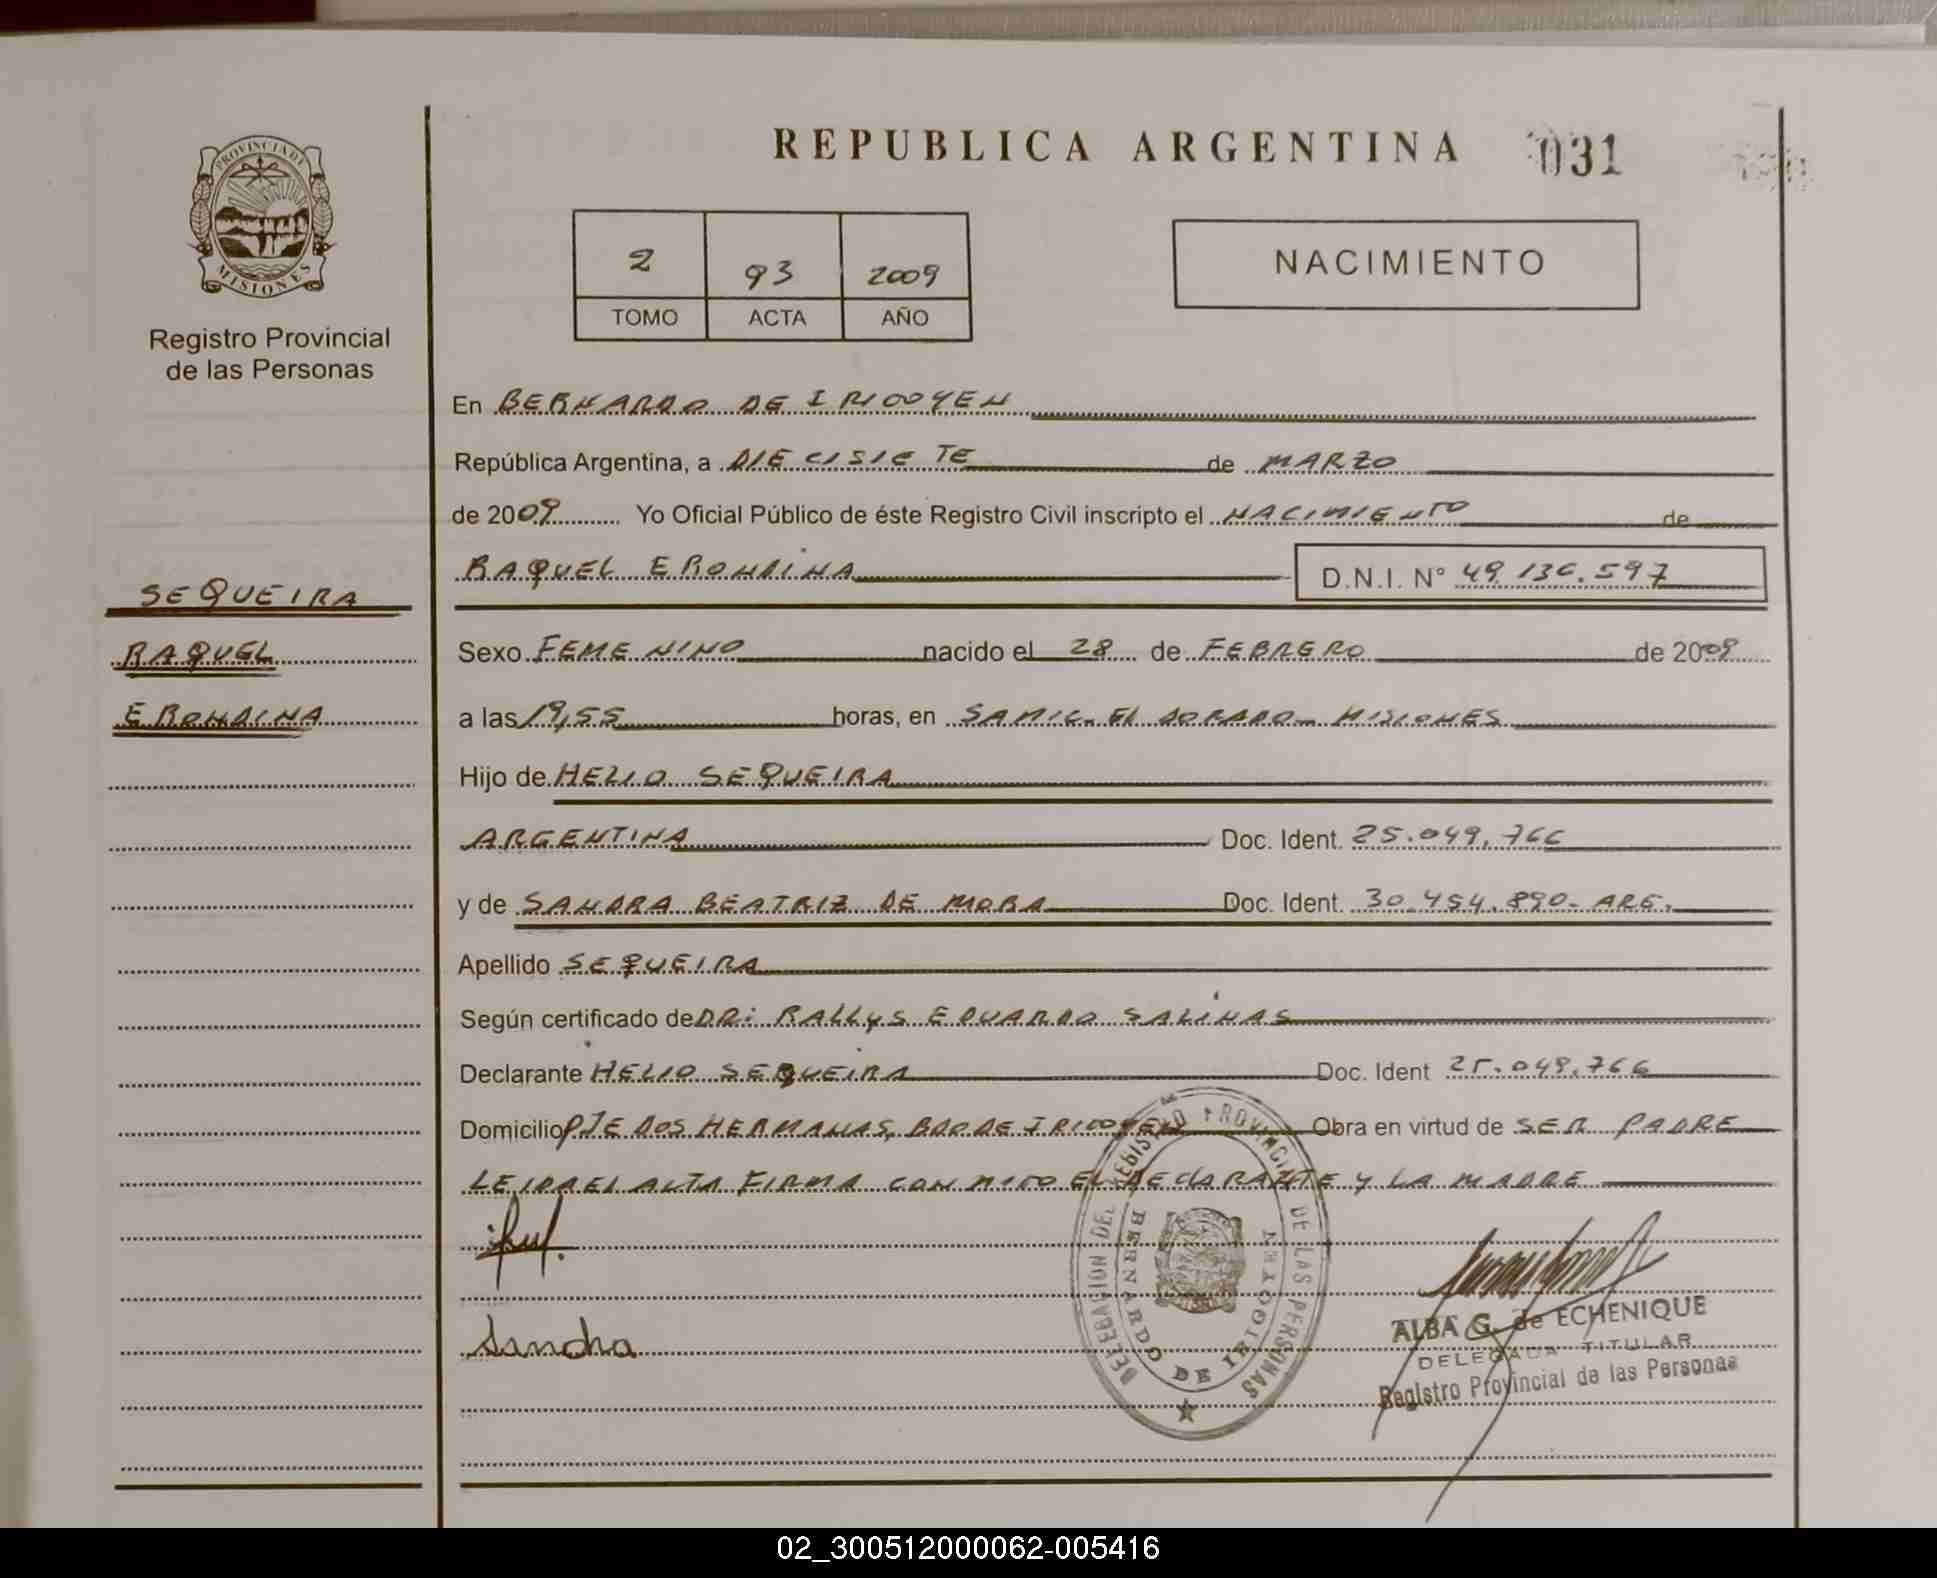 REPUBLICA ARGENTINA 031
PROVINCIA DE
MISIONES
Registro Provincial
de las Personas
2 93 2009
TOMO ACTA AÑO
NACIMIENTO
En BERNARDO DE IRIGOYEN
República Argentina, a DIECISIETE de MARZO
de 2009 Yo Oficial Público de éste Registro Civil inscripto el NACIMIENTO de
RAQUEL ERONDINA D.N.I. N° 49.136.597
SEQUEIRA
RAQUEL
ERONDINA
Sexo FEMENINO nacido el 28 de FEBRERO de 2009
a las 19,55 horas, en SAMIC - ELDORADO - MISIONES
Hijo de HELIO SEQUEIRA
ARGENTINA Doc. Ident. 25.049.766
y de SANDRA BEATRIZ DE MORA Doc. Ident. 30.454.890- ARG.
Apellido SEQUEIRA
Según certificado de DR: RALLYS EDUARDO SALINAS
Declarante HELIO SEQUEIRA Doc. Ident 25.049.766
Domicilio PJE DOS HERMANAS, BDO DE IRIGOYEN Obra en virtud de SER PADRE
LEIDA EL ACTA FIRMA CONMIGO EL DECLARANTE Y LA MADRE
Sandra
DELEGACION DEL REGISTRO PROVINCIAL DE LAS PERSONAS
BERNARDO DE IRIGOYEN
ALBA G. de ECHENIQUE
DELEGADA TITULAR
Registro Provincial de las Personas
02_300512000062-005416